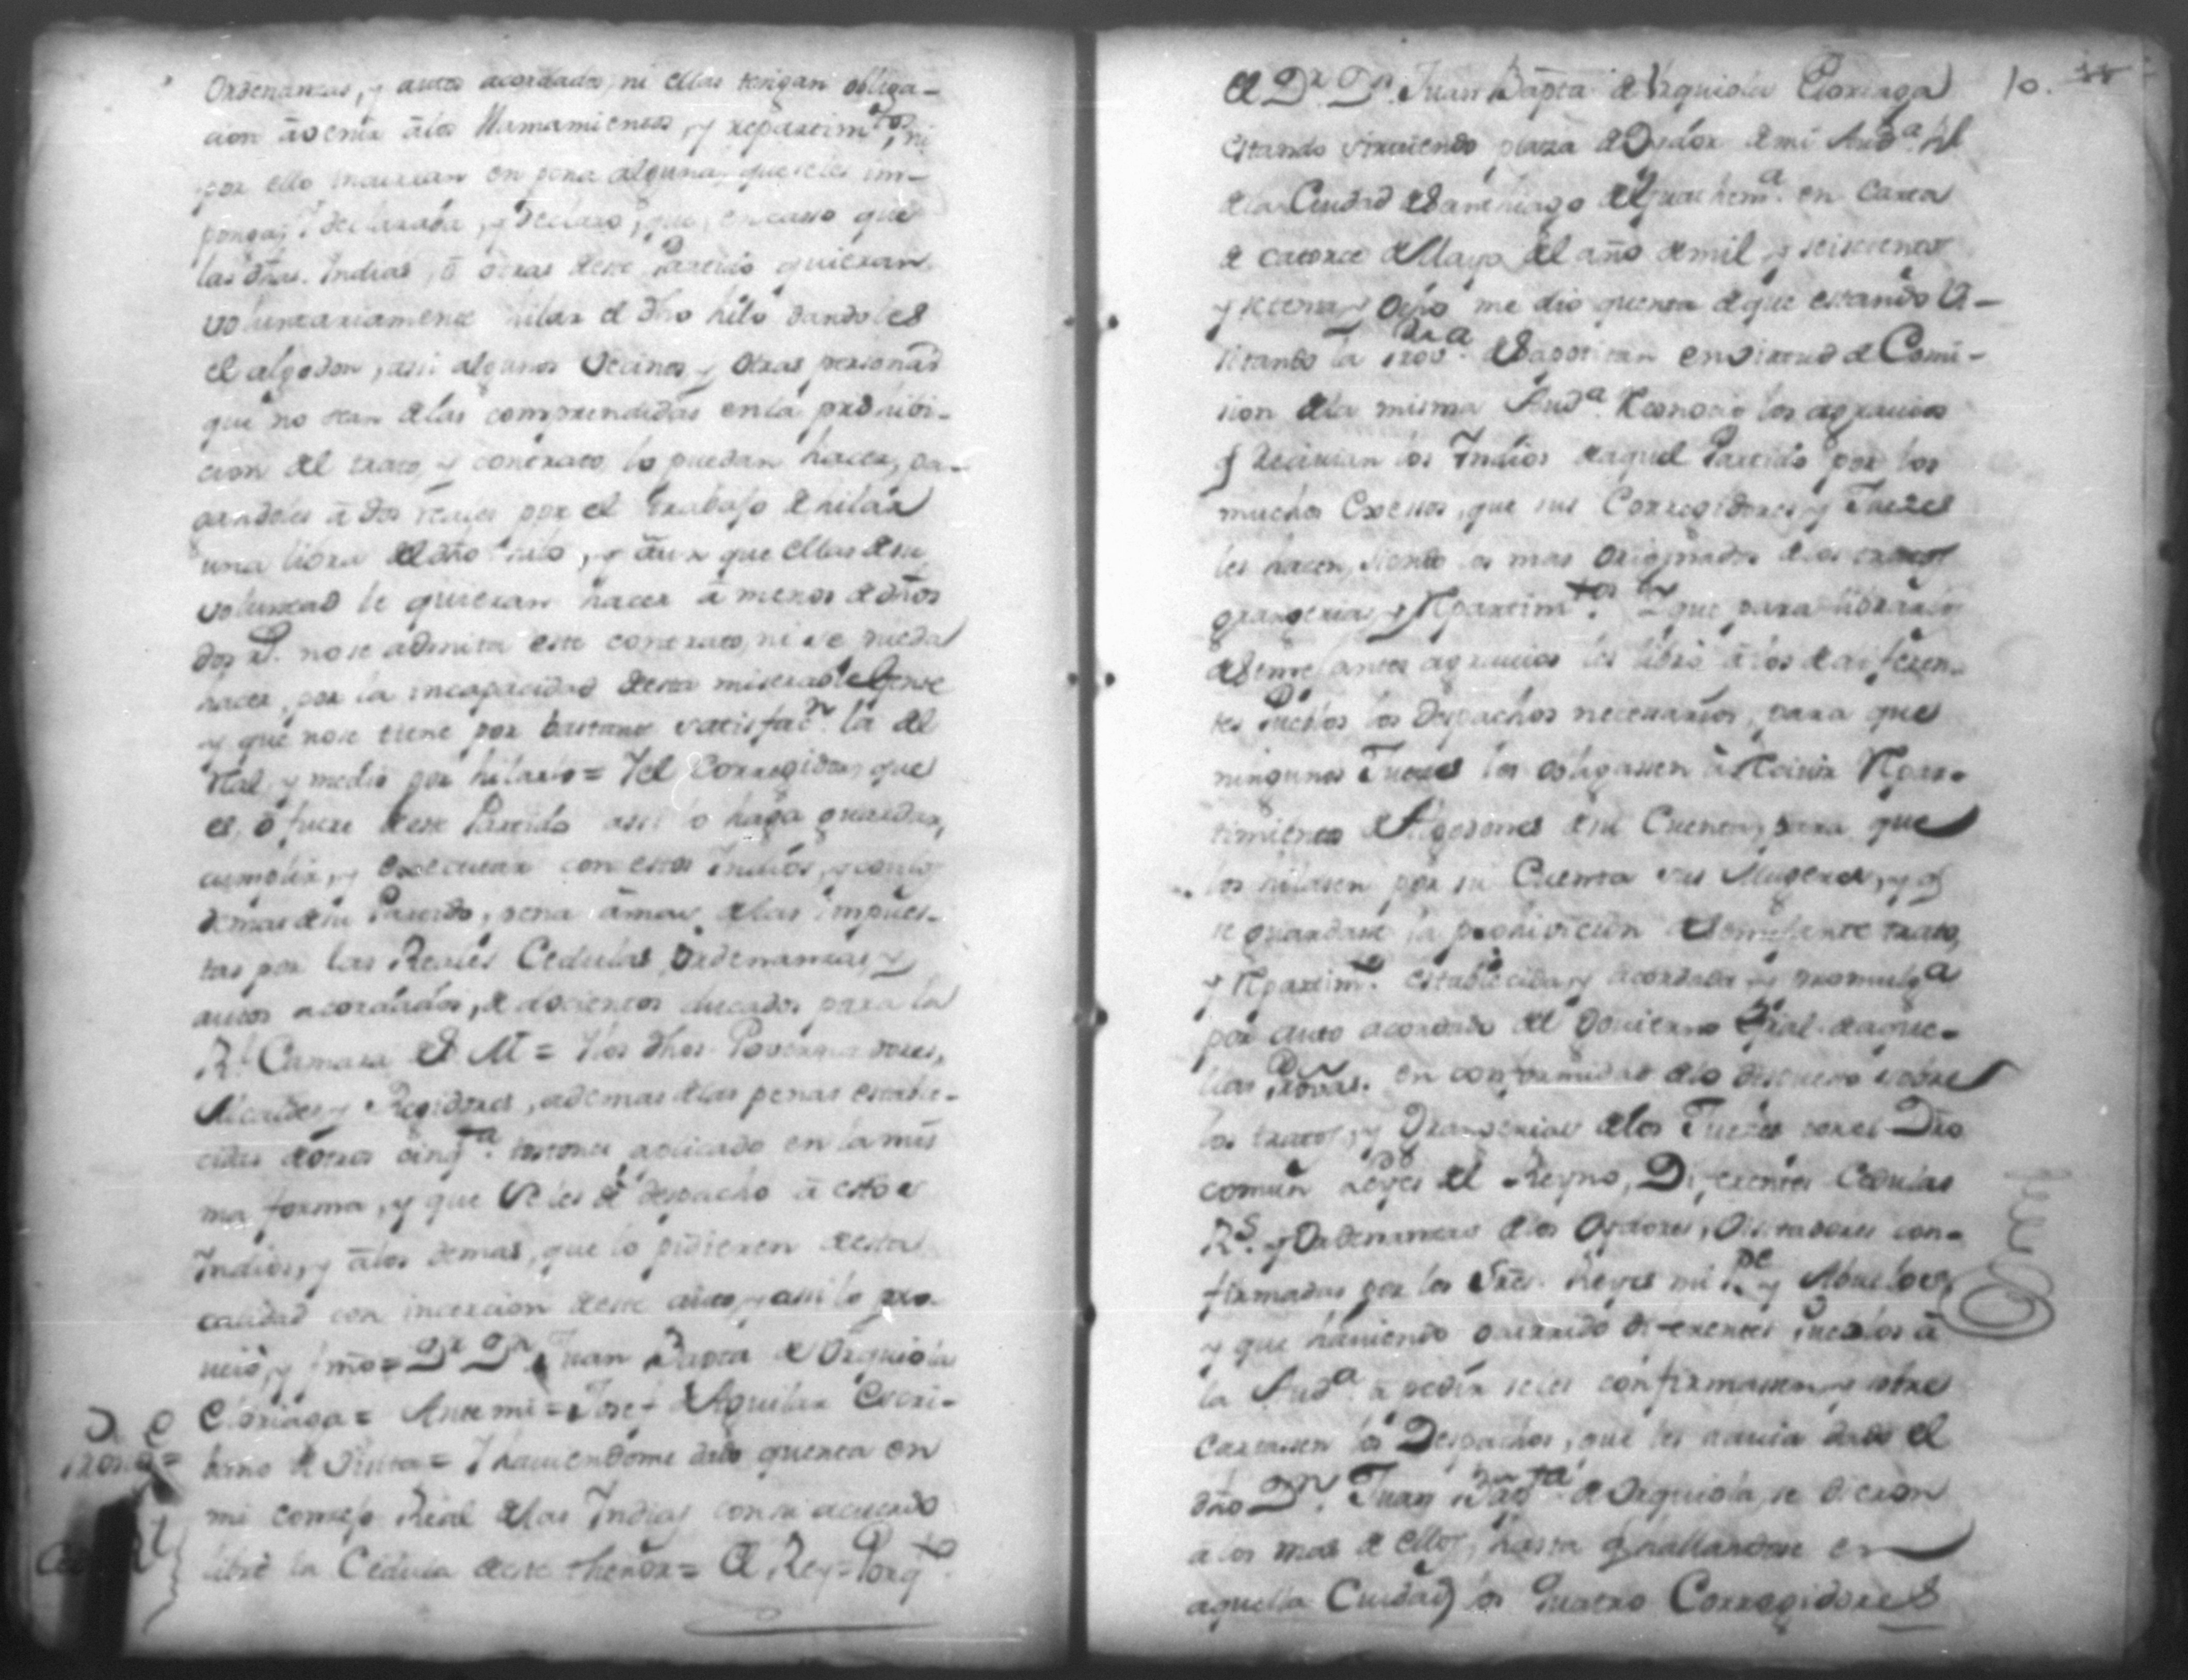 Ordenanzas, y autos acordados, ni ellas tengan obliga-
cion a venir a los llamamientos, y repartim.tos, ni
por ello incurran en pena alguna, que se les im-
ponga, I declaraba, y declaro, que, en casso que
las dhas. Indias, ó otras deste Partido quieran
voluntariamente hilar el dho hilo dandoles
el algodon, assi algunos Vecinos, y otras personas
que no sean de las comprendidas en la prohibi-
cion del trato, y contrato, lo puedan hacer, pa-
gandoles a dos reales por el trabajo de hilar
una libra del dho hilo, y aun que ellas de su
voluntad le quieran hacer a menos de dhos
dos r.s no se admita este contrato, ni se pueda
hacer, por la incapacidad desta miserable Gente
y que no se tiene por bastante satisfac.n la del
Real, y medio por hilarlo = Y el Corregidor, que
es, ó fuere deste Partido assi lo haga guardar,
cumplir, y executar con estos Indios, y con los
demas de su Partido, pena a mas de las impues-
tas por las Reales Cedulas, Ordenanzas, y
autos acordados, de docientos ducados para la
R.l Camara de S. M = Y los dhos Governadores,
Alcaldes, y Regidores, ademas de las penas estable-
cidas de otros cinq.ta tostones aplicado en la mis
ma forma, y que se les dé despacho a estos
Indios, y a los demas, que lo pidieren desta
calidad con incercion deste auto, y assi lo pro-
veió, y fmo = D.r D.n Juan Bapta de Urquiola
Eloriaga = Ante mi = Josef de Aguilar Escri-
bano de Visita = I haviendome dado quenta en
mi consejo Real de las Indias con su acuerdo
libré la Cedula deste thenor = El Rey = Porq.to
10.
el D.r D.n Juan Bapta de Urquiola Eloriaga
estando sirviendo plaza de Oydor de mi Aud.a Rl
de la Ciudad de Santhiago de Guathem.a en Carta
de catorce de Mayo del año de mil, y seiscientos
y setenta, y ocho me dio quenta de que estando Vi-
sitando la Prov.a de Sapotitan en virtud de Comi-
sion de la misma Aud.a Reconocio los agravios
q recivian los Indios de aquel Partido por los
muchos Excessos, que sus Corregidores, y Juezes
les hacen, siendo los mas originados de los tratos
grangerias, y Repartim.tos y que para librarlos
de semejantes agravios les libró a los de diferen-
tes Pueblos los Despachos necessarios, para que
ningunos Juezes los obligassen a Recivir Repar-
timientos de Algodones de su Cuenta, para que
los hilasen por su Cuenta sus Mugeres, y q
se guardase la prohivicion de semejante trato,
y Repartim.to establecida, y acordada, y promulg.a
por auto acordado del Govierno Gral. de aque-
llas Provas. en conformidad de lo dispuesto sobre
los tratos, y Grangerias de los Juezes por el Dro
comun Leyes del Reyno, Diferentes Cedulas
R.s y Ordenanzas de los Oydores, Visitadores con-
firmadas por los Sres. Reyes mi P.e y Abuelos,
y que haviendo ocurrido diferentes Pueblos a
la Aud.a a pedir se les confirmassen, y sobre
cartassen los Despachos, que les havia dado el
dho D.n Juan Bap.ta de Urquiola, se dieron
a los mas de ellos, hasta q hallandose en
aquella Ciudad los quatro Corregidores